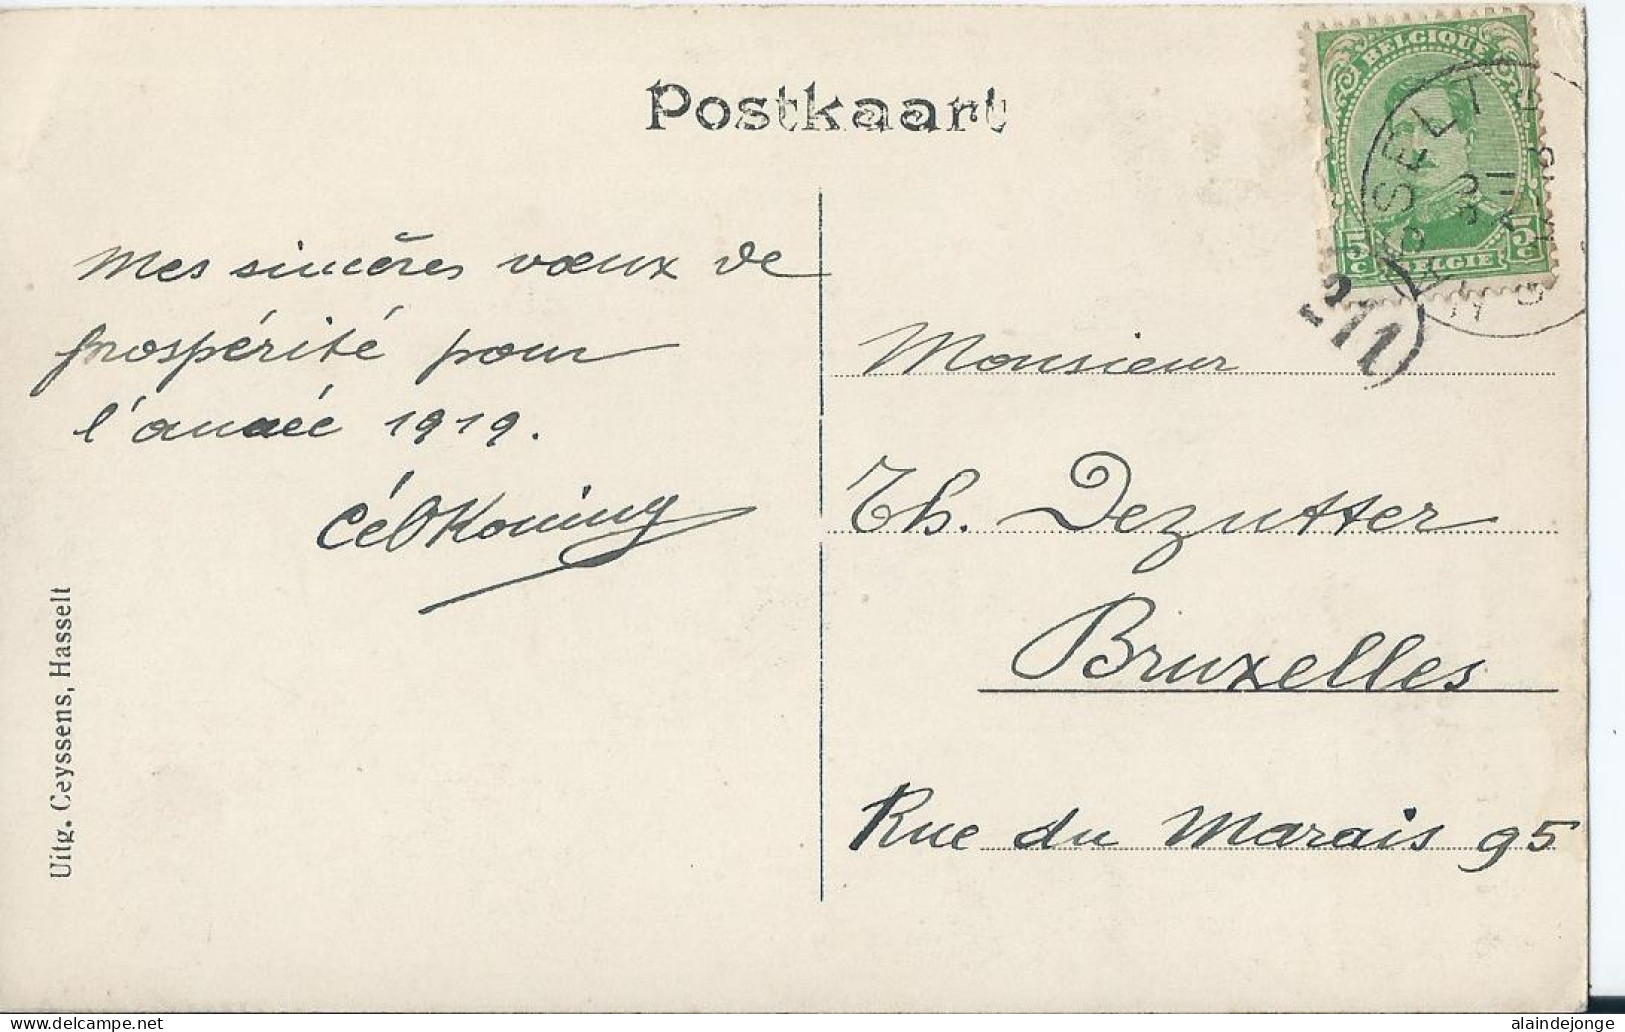 Postkaart
BELGIQUE
5 c 5 c
BELGIE
Mes sincères vœux de
prospérité pour
l'année 1919.
Monsieur
Th. Dezutter
Bruxelles
Rue du Marais 95
Uitg. Ceyssens, Hasselt
https://www.delcampe.net
alaindejonge